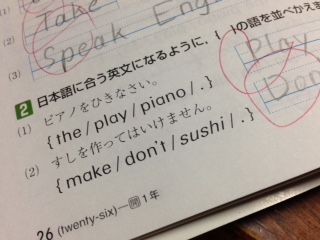 Take
(2)
Speak Eng
(3)
2 日本語に合う英文になるように, { }の語を並べかえ
(1) ピアノをひきなさい。
{ the / play / piano / . }
Play
(2) すしを作ってはいけません。
{ make / don't / sushi / . }
Don
26 (twenty-six)—開1年